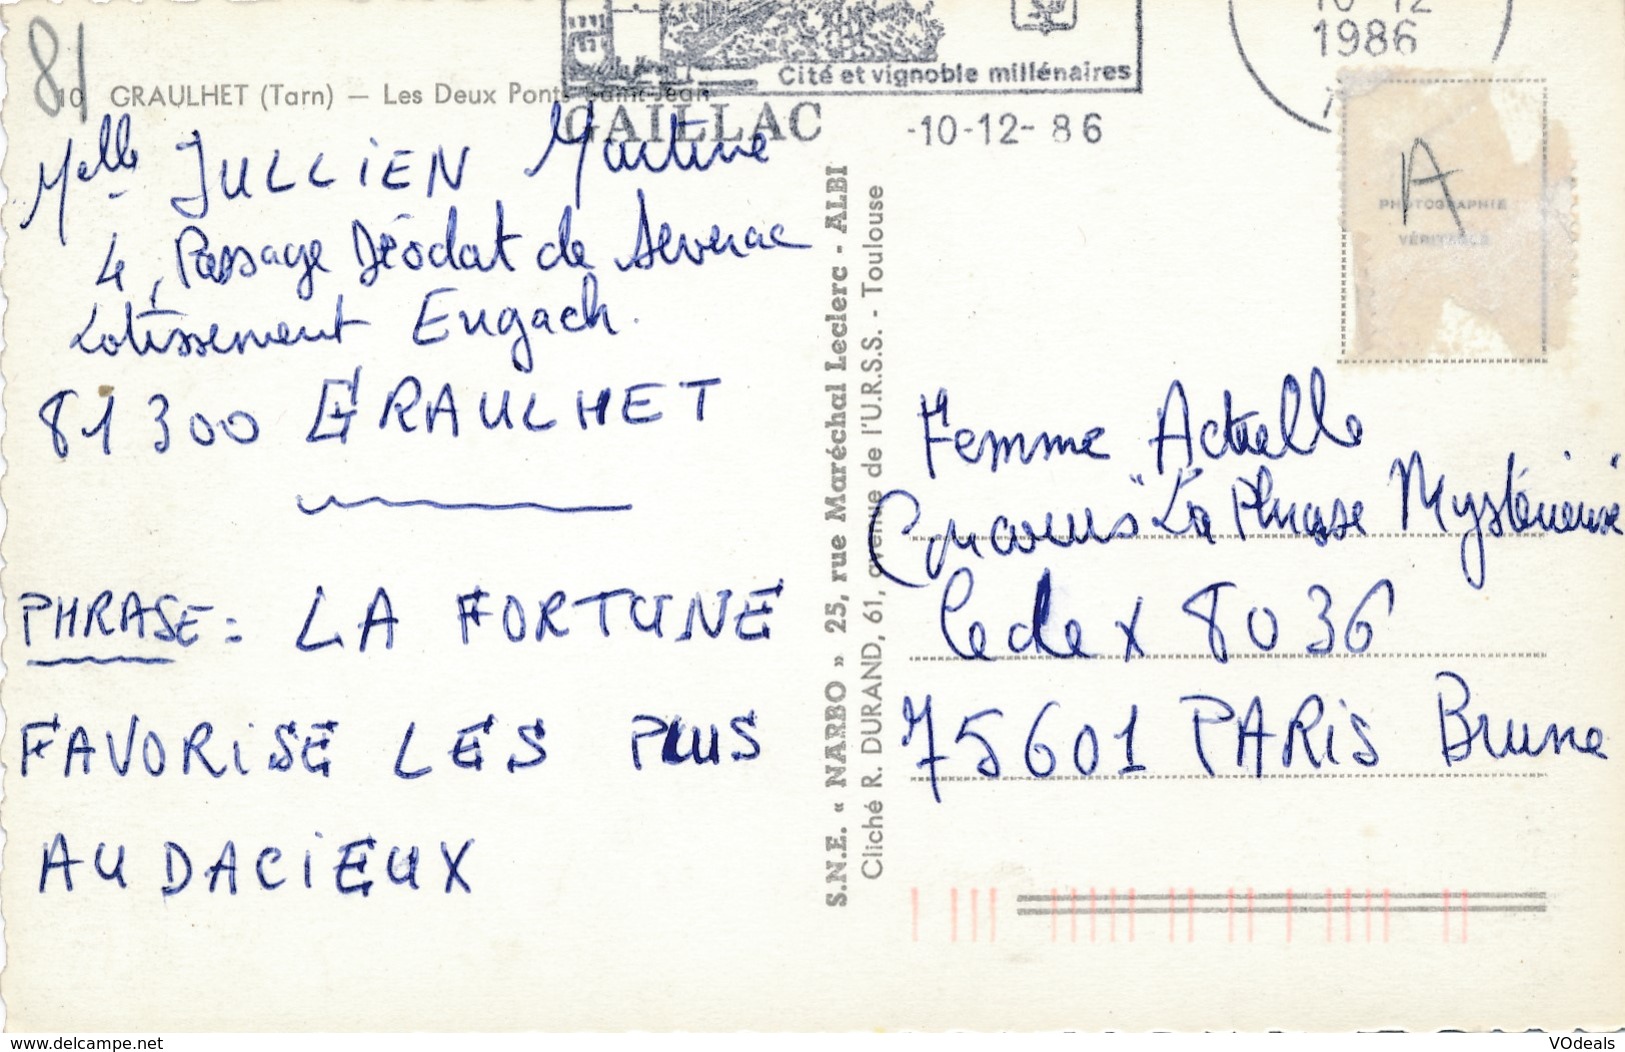 81
10 GRAULHET (Tarn) — Les Deux Ponts Saint-Jean
Cité et vignoble millénaires
GAILLAC
-10-12- 86
10-12
1986
Melle JULLIEN Martine
4, Passage Déodat de Severac
Lotissement Engach.
81300 GRAULHET
PHRASE: LA FORTUNE
FAVORISE LES PLUS
AUDACIEUX
S.N.E. « NARBO » 25, rue Maréchal Leclerc - ALBI
Cliché R. DURAND, 61, avenue de l'U.R.S.S. - Toulouse
A
PHOTOGRAPHIE
VÉRITABLE
Femme Actuelle
Concours "La Phrase Mystérieuse"
Cedex 8036
75601 PARIS Brune
http://www.delcampe.net
VOdeals